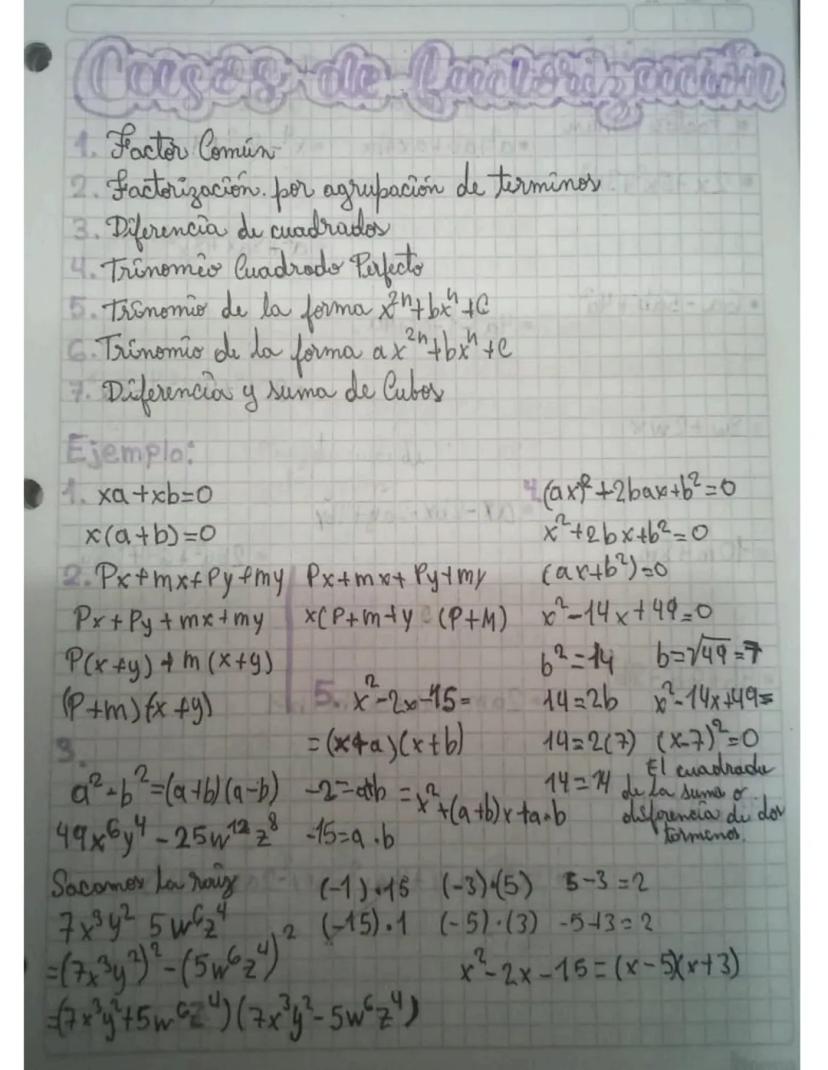 Casos de Factorización
1. Factor Común
2. Factorización por agrupación de terminos
3. Diferencia de cuadrados
4. Trinomio Cuadrado Perfecto
5. Trinomio de la forma x²ⁿ+bxⁿ+C
6. Trinomio de la forma ax²ⁿ+bxⁿ+C
7. Diferencia y suma de Cubos
Ejemplo:
1. xa+xb=0
x(a+b)=0
2. Px+mx+Py+my
Px+Py+mx+my
P(x+y)+m(x+y)
(P+m)(x+y)
Px+mx+Py+my
x(P+m+y (P+M)
3.
a²-b²=(a+b)(a-b)
49x⁶y⁴-25w¹²z⁸
Sacamos la raiz
7x³y² 5w⁶z⁴
=(7x³y²)²-(5w⁶z⁴)²
=(7x³y²+5w⁶z⁴)(7x³y²-5w⁶z⁴)
4. (ax)²+2bax+b²=0
x²+2bx+b²=0
(ax+b²)=0
x²-14x+49=0
b²=14 b=√49=7
14=2b x²-14x+49=
14=2(7) (x-7)²=0
14=14
El cuadrado
de la suma o
diferencia di dos
terminos.
5. x²-2x-15=
=(x+a)(x+b)
-2=a+b =x²+(a+b)x+a·b
-15=a·b
(-1)·15 (-3)·(5) 5-3=2
(-15)·1 (-5)·(3) -5+3=2
x²-2x-15=(x-5)(x+3)